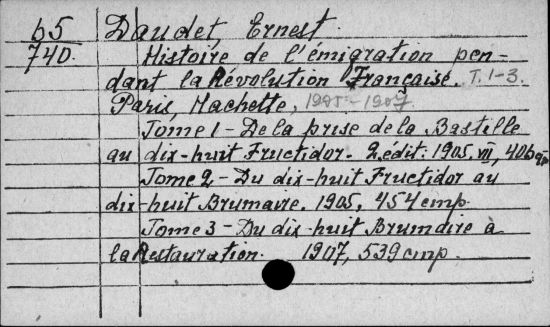 65
740.
Daudet, Ernest.
Histoire de l'émigration pen-
dant la Révolution Française. T. 1-3.
Paris, Hachette, 1905-1907.
Tome 1 - De la prise de la Bastille
au dix-huit Fructidor. 2 édit: 1905. VII, 406 стр.
Tome 2 - Du dix-huit Fructidor au
dix-huit Brumaire. 1905, 454 стр.
Tome 3 - Du dix-huit Brumaire à
la Restauration. 1907, 539 стр.